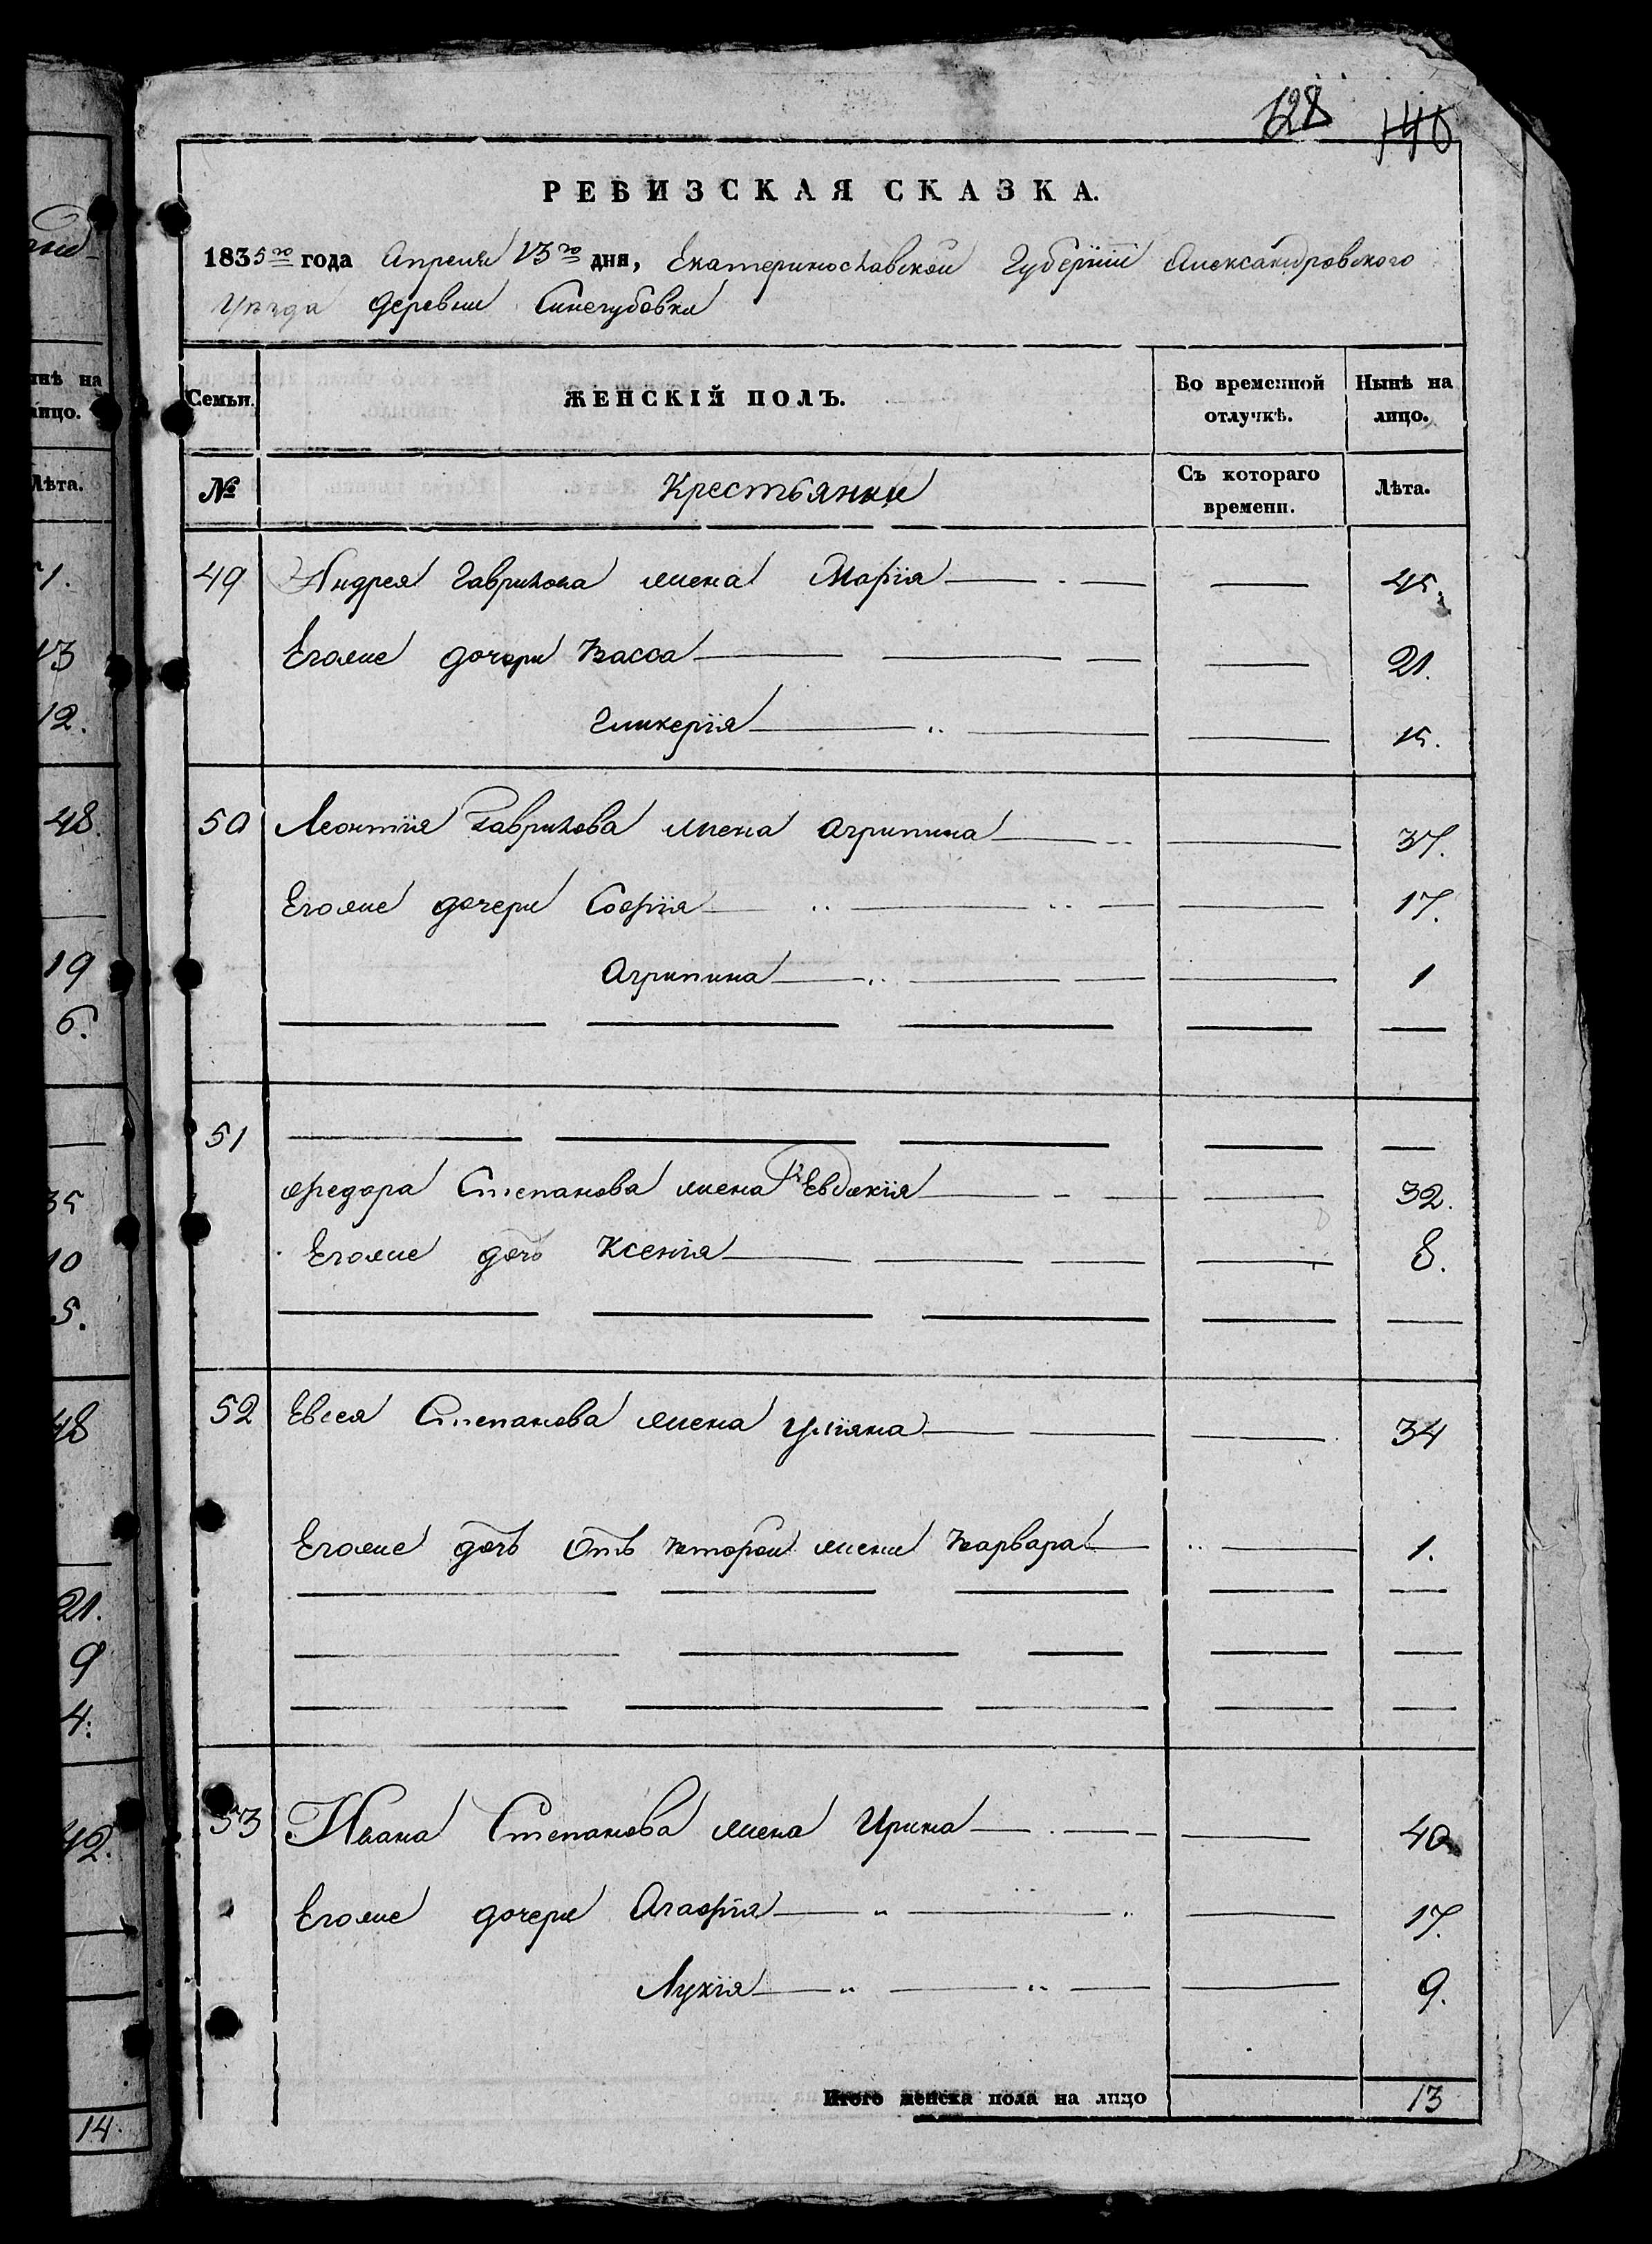 128 146
РЕВИЗСКАЯ СКАЗКА.
1835го года Апреля 13го дня, Екатеринославской Губернїи Александровского
Уезда деревни Синегубовки
Семьи. ЖЕНСКІЙ ПОЛЪ. Во временной отлучкѣ. Нынѣ на лицо.
№ Крестьянки Съ котораго времени. Лѣта.
49 Андрея Гаврилова жена Марїя 45.
Егоже дочери Васса 21.
Гликерїя 15.
50 Леонтїя Гаврилова жена Агрипина 37.
Егоже дочери Софїя 17.
Агрипина 1
51
Федора Степанова жена Евдокїя 32.
Егоже дочь Ксенїя 8.
52 Евсея Степанова жена Улїяна 34
Егоже дочь Отъ Второй жены Варвара 1.
53 Ивана Степанова жена Ирина 40
Егоже дочери Агафїя 17.
Лукїя 9.
Итого женска пола на лицо 13
нѣ на
лицо.
Лѣта.
1.
13
12.
48.
19
6.
35
10
5.
48
21.
9
4.
42.
14.